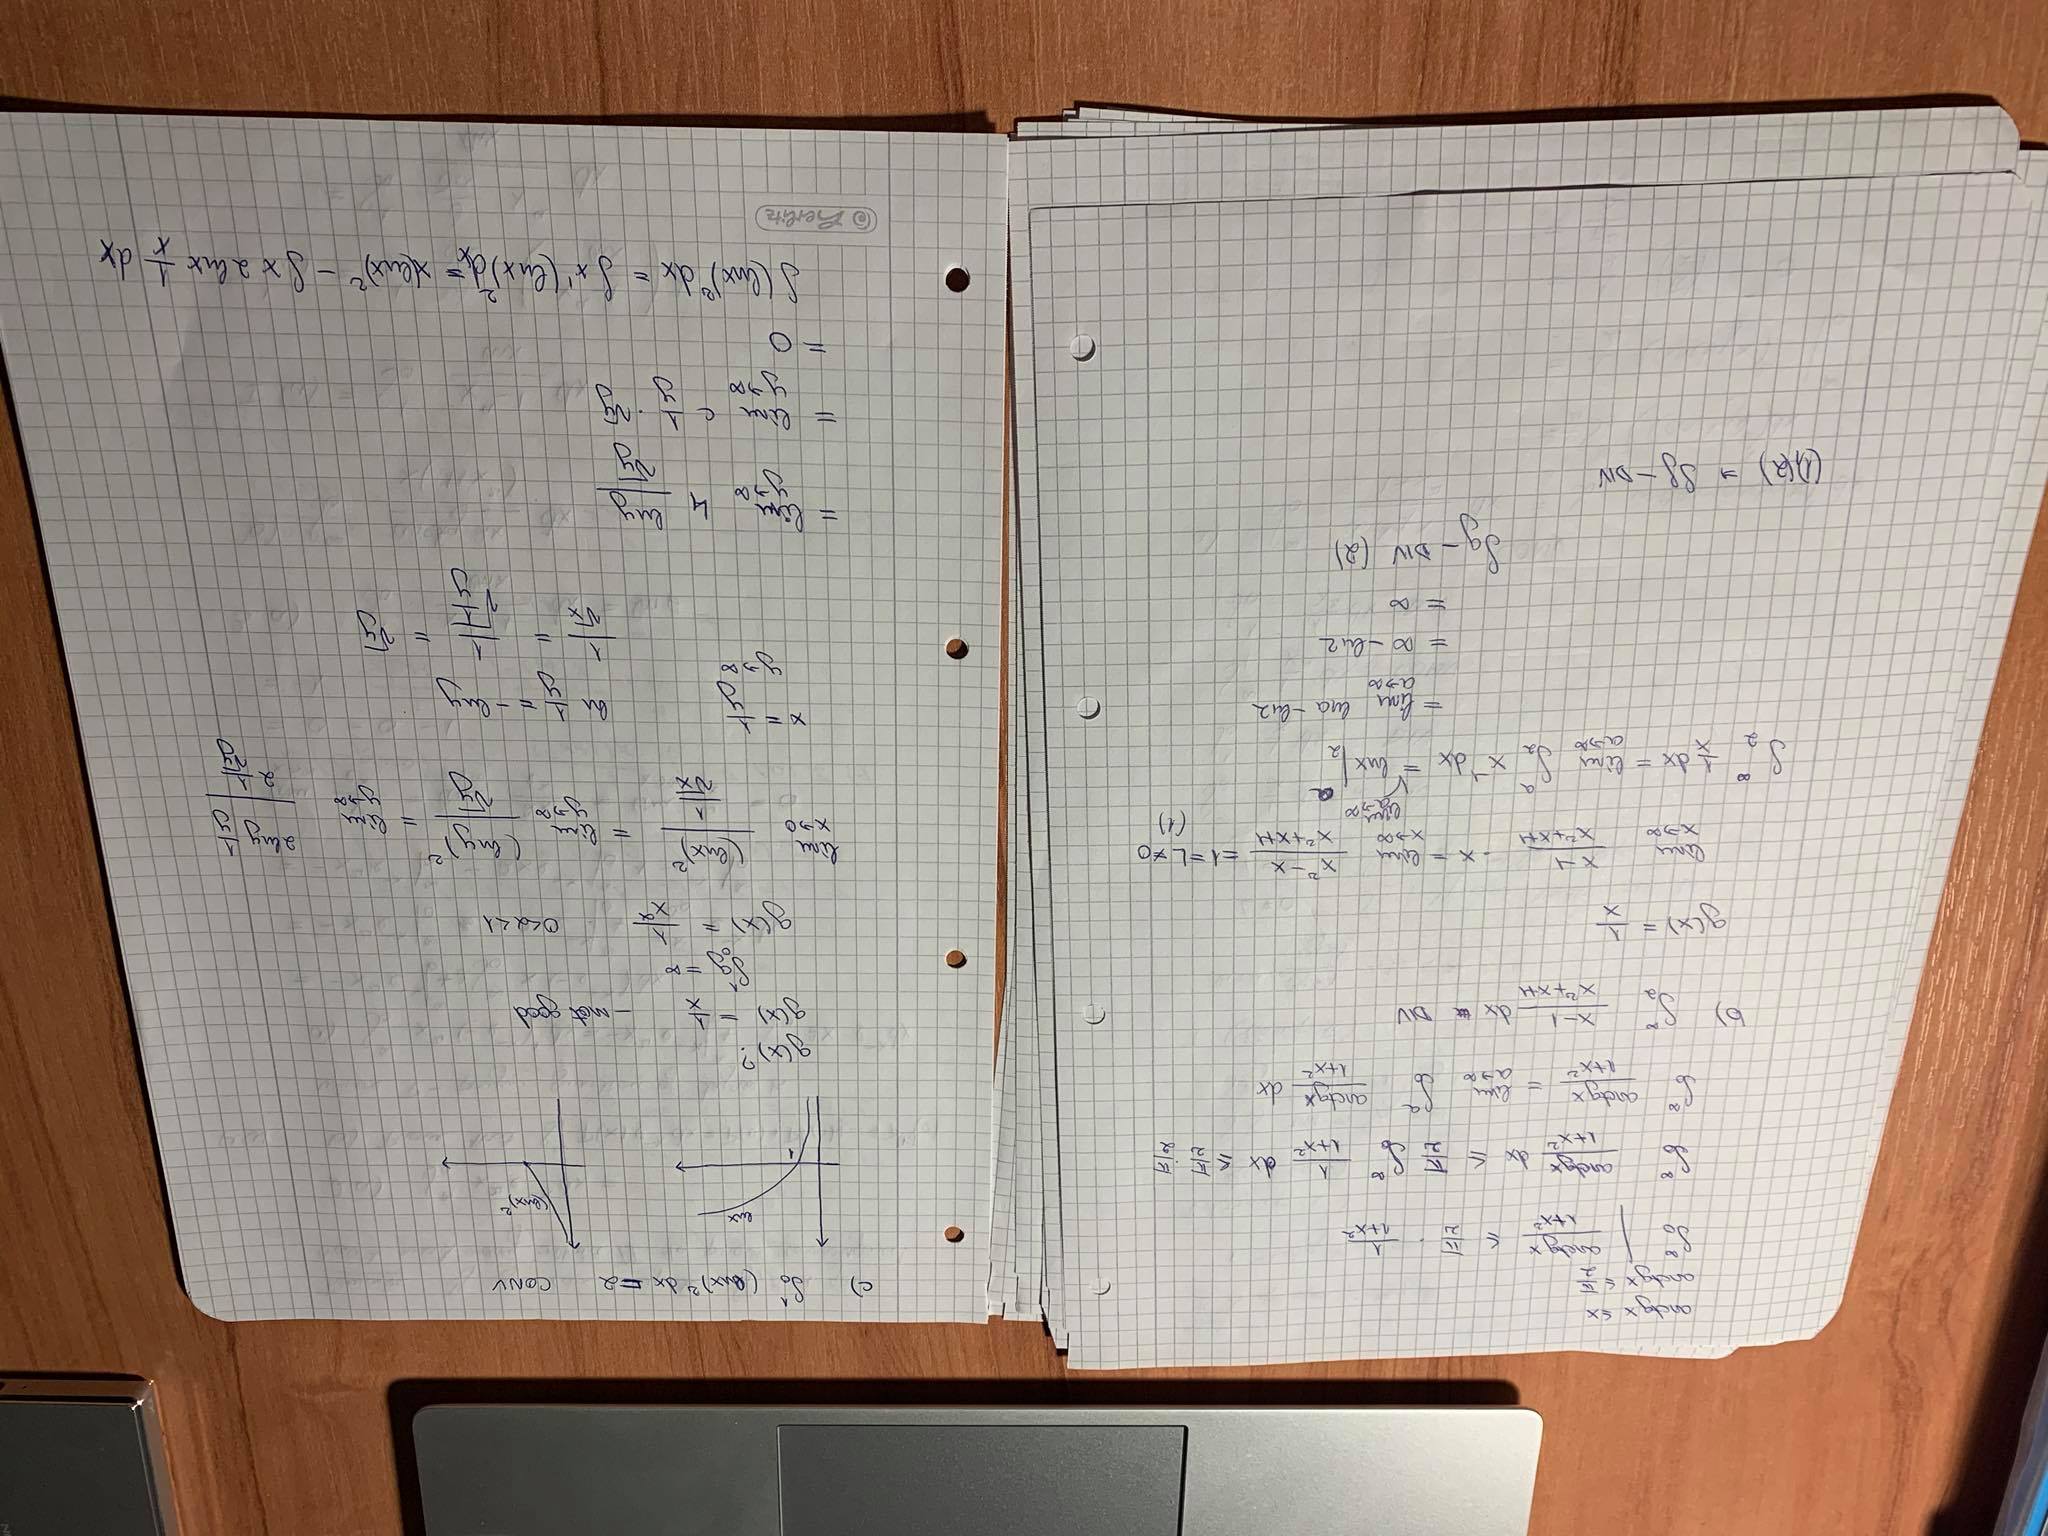 arctgx ≤ x
arctgx ≤ π/2
∫₀^∞ | arctgx/(1+x²) ≤ π/2 · 1/(1+x²)
∫₀^∞ arctgx/(1+x²) dx ≤ π/2 ∫₀^∞ 1/(1+x²) dx ≤ π/2 · π/2
∫₀^∞ arctgx/(1+x²) = lim a→∞ ∫₀^a arctgx/(1+x²) dx
b) ∫₂^∞ (x-1)/(x²+x+1) dx - DIV
g(x) = 1/x
lim x→∞ (x-1)/(x²+x+1) · x = lim x→∞ (x²-x)/(x²+x+1) = 1 = L ≠ 0
(1)
lim a→∞
∫₂^∞ 1/x dx = lim a→∞ ∫₂^a x⁻¹ dx = lnx |₂^a
= lim a→∞ lna - ln2
= ∞ - ln2
= ∞
∫g - DIV (2)
(1)(2) ⇒ ∫f - DIV
c) ∫₀^1 (lnx)² dx = 2 CONV
lnx
(lnx)²
1
g(x)?
g(x) = 1/x - not good
∫₀^1 g = ∞
g(x) = 1/x^α 0<α<1
lim x→0 (lnx)²/(1/√x) = lim y→∞ (lny)²/√y = lim y→∞ (2lny 1/y)/(2 1/√y)
x = 1/y ln 1/y = -lny
y→∞
1/√x = 1/√(1/y) = √y
= lim y→∞ 4 lny/√y
= lim y→∞ c 1/y · √y
= 0
∫(lnx)² dx = ∫x'(lnx)² dx = x(lnx)² - ∫x 2lnx 1/x dx
Herlitz